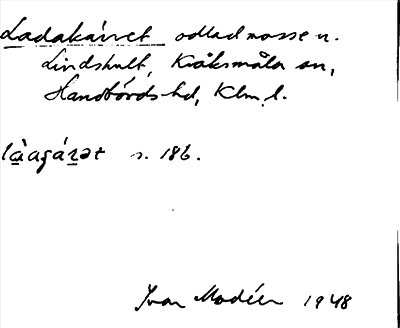 Ladakärret odlad mosse n.
Lindshult, Kråksmåla sn,
Handbörds hd, Klm. l.
s. 186.
Ivar Modéer 1948